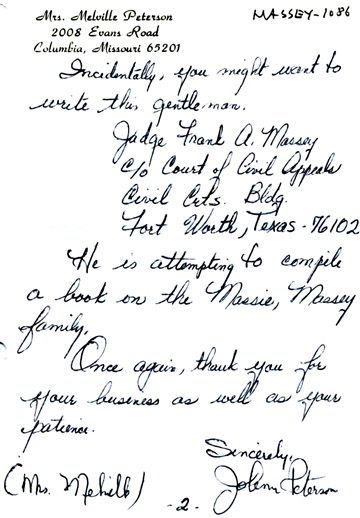 Mrs. Melville Peterson
MASSEY-1086
2008 Evans Road
Columbia, Missouri 65201
Incidentally, you might want to
write this gentleman.
Judge Frank A. Massey
c/o Court of Civil Appeals
Civil Crts. Bldg.
Fort Worth, Texas - 76102
He is attempting to compile
a book on the Massie, Massey
family.
Once again, thank you for
your business as well as your
patience.
Sincerely,
(Mrs. Melville) Peterson
-2-